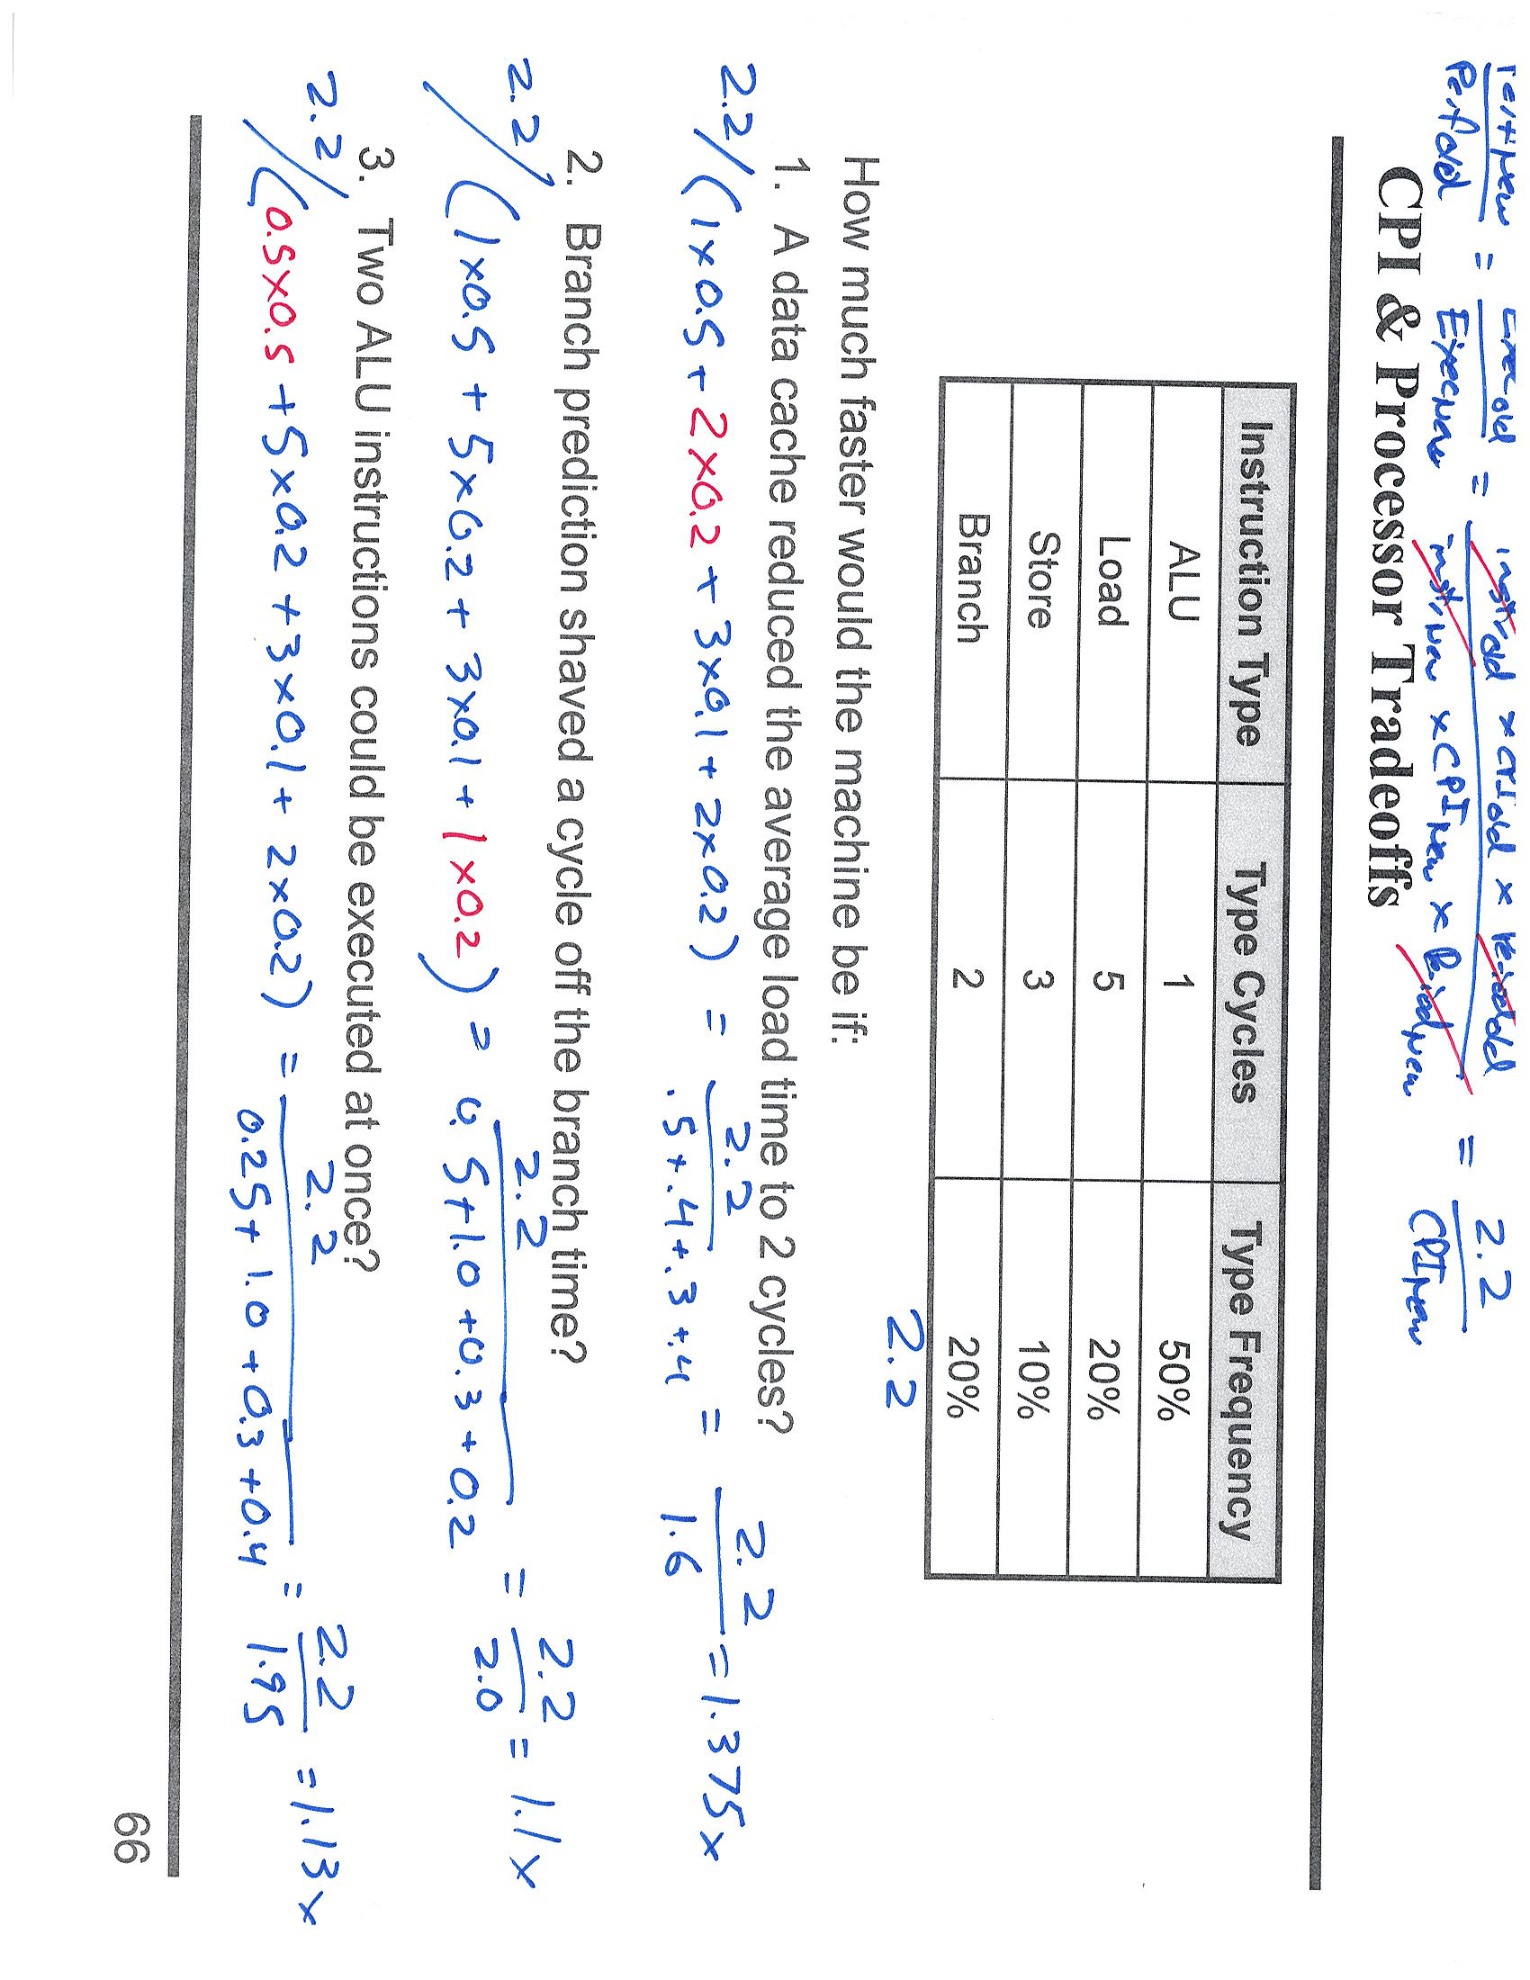 Perfnew / Perfold = Execold / Execnew = instrold x CPIold x Periodold / instrnew x CPInew x Periodnew = 2.2 / CPInew
CPI & Processor Tradeoffs
Instruction Type Type Cycles Type Frequency
ALU 1 50%
Load 5 20%
Store 3 10%
Branch 2 20%
2.2
How much faster would the machine be if:
1. A data cache reduced the average load time to 2 cycles?
2.2/(1x0.5+2x0.2+3x0.1+2x0.2) = 2.2 / .5+.4+.3+.4 = 2.2 / 1.6 = 1.375x
2. Branch prediction shaved a cycle off the branch time?
2.2/(1x0.5+5x0.2+3x0.1+1x0.2) = 2.2 / 0.5+1.0+0.3+0.2 = 2.2 / 2.0 = 1.1x
3. Two ALU instructions could be executed at once?
2.2/(0.5x0.5+5x0.2+3x0.1+2x0.2) = 2.2 / 0.25+1.0+0.3+0.4 = 2.2 / 1.95 = 1.13x
66